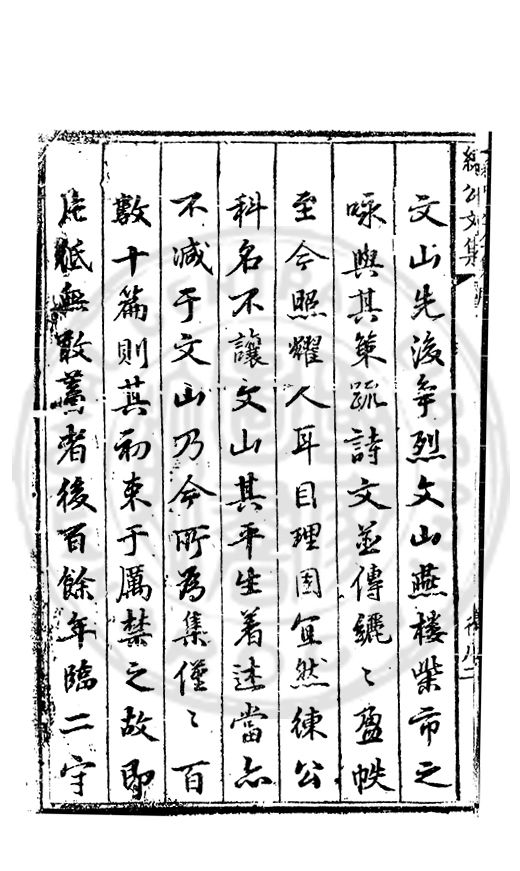 文山先後爭烈文山燕樓柴市之
咏與其策疏詩文並傳纚〻盈帙
至今照耀人耳目理固宜然練公
科名不讓文山其平生著述當亦
不减于文山乃今所為集僅〻百
數十篇則其初束于厲禁之故即
片紙無敢蓄者後百餘年臨二守